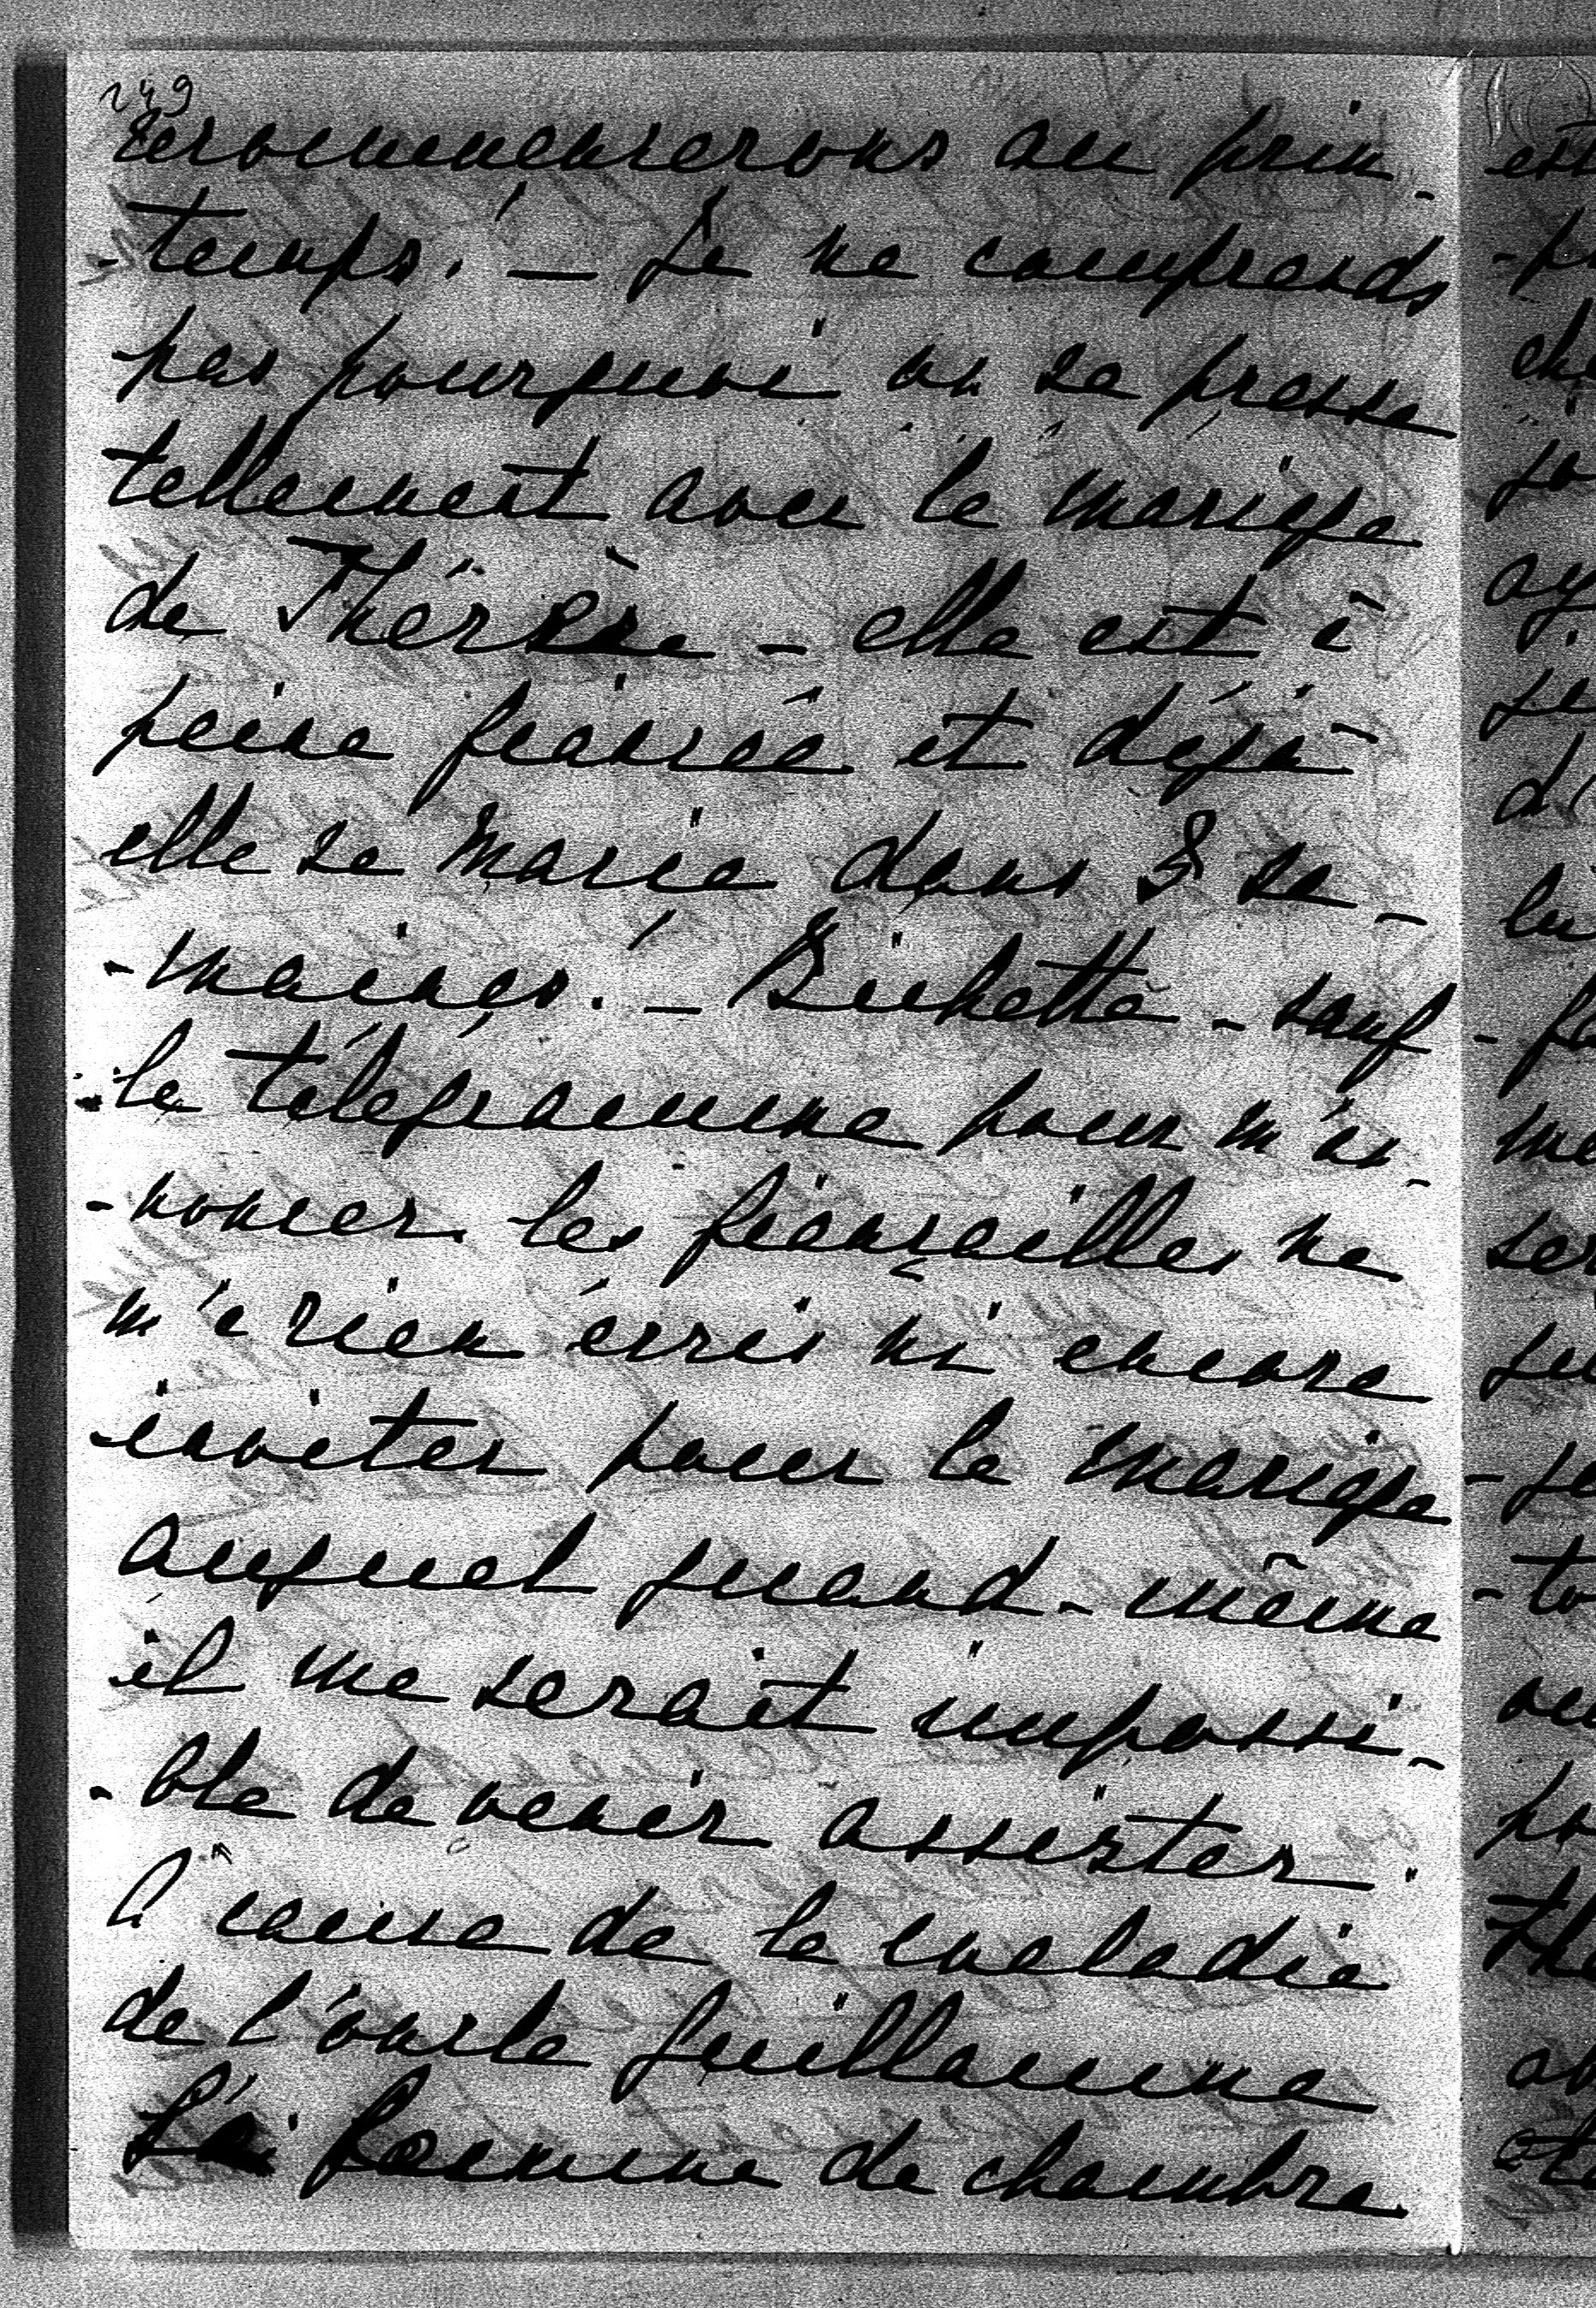 249
recommencerons au prin-
-temps. — Je ne comprends
pas pourquoi on se presse
tellement avec le mariage
de Thérèse - elle est à
peine fiancée et déjà
elle se marie dans 3 se-
-maines. — Bichette - sauf
le télégramme pour m'an-
-noncer les fiançailles ne
m'a rien écrit ni encore
inviter pour le mariage
auquel quand-même
il me serait impossi-
-ble de venir assister
à cause de la maladie
de l'oncle Guillaume
femme de chambre